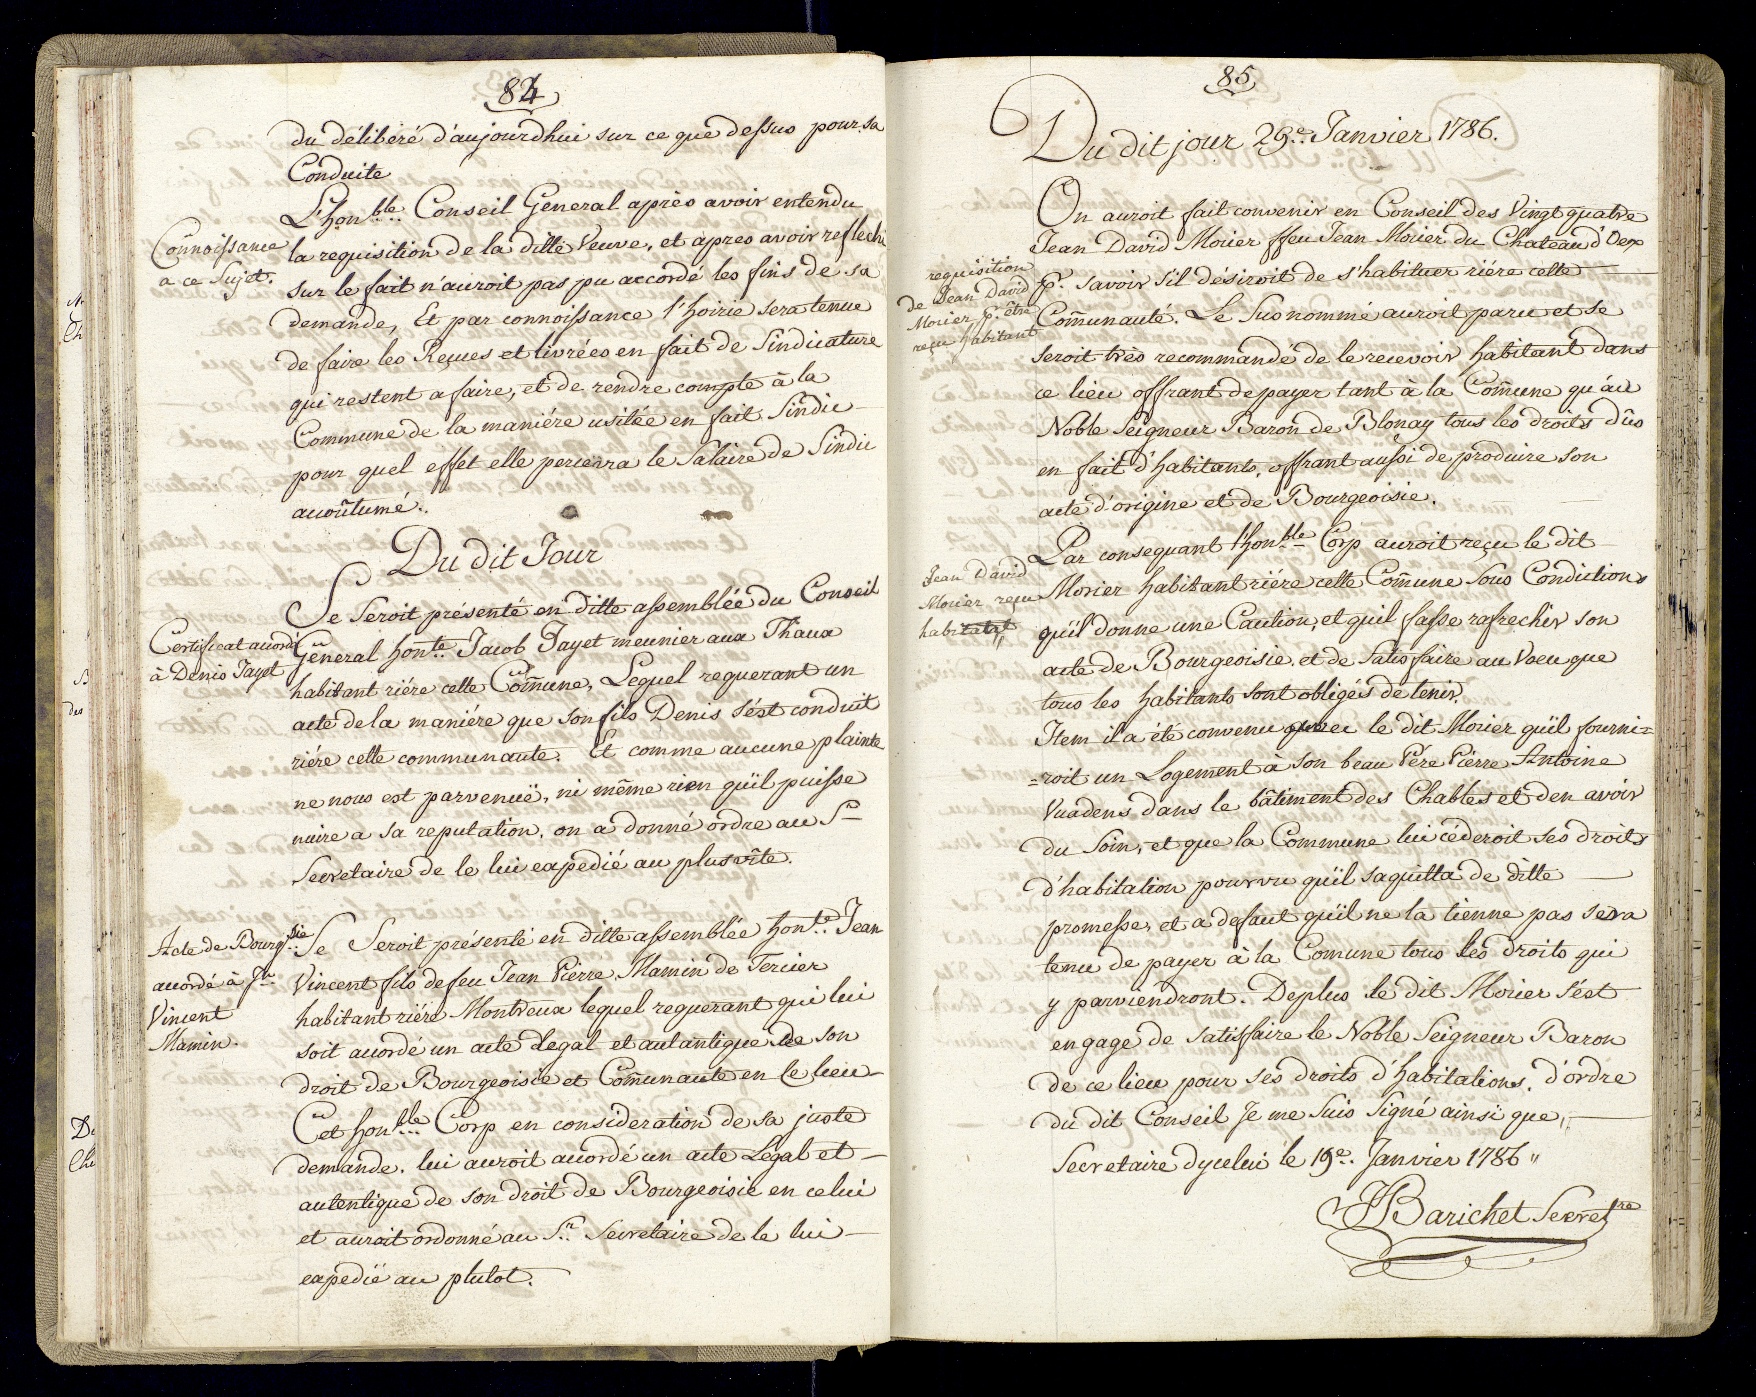 84
du délibéré d'aujourdhui sur ce que dessus pour sa
Conduite
L'honble. Conseil General après avoir entendu
Connoissance
a ce Sujet.
la requisition de la ditte Veuve, et apres avoir reflechi
sur le fait n'auroit pas pu accordé les fins de sa
demande, Et par connoissance l'hoirie sera tenue
de faire les Reçues et livrées en fait de Sindicature
qui restent a faire, et de rendre compte à la
Commune de la maniére usitée en fait Sindic
pour quel effet elle percevra le Salaire de Sindic
accoûtumé.
Du dit Jour
Se Seroit présenté en ditte assemblée du Conseil
Certificat accordé
à Denis Jayet
Géneral honte. Jacob Jayet meunier aux Thaux
habitant riére cette Com̃une, Lequel requerant un
acte de la maniére que son fils Denis s'ést conduit
riére cette communaute. Et comme aucune plainte
ne nous est parvenuë, ni même rien qu'il puisse
nuire a sa reputation, on a donné ordre au Sr
Secretaire de le lui expedié au plus vîte.
Acte de Bourgsie
accordé à Jn
Vincent
Mamin.
Se Seroit présenté en ditte assemblée honte. Jean
Vincent fils de feu Jean Pierre Mamin de Tercier
habitant riére Montreux lequel requerant qui lui
soit accordé un acte Legal et autantique de son
droit de Bourgeoisie et Com̃unaute en Ce lieu
Cet honble Corp en consideration de sa juste
demande. lui auroit accordé un acte Légal et
autentique de son droit de Bourgeoisie en celui
et auroit ordonné au Sr. Secretaire de le lui
expedié au plutot.
85
Du dit jour 29e. Janvier 1786.
On auroit fait convenir en Conseil des Vingt quatre
Jean David Morier ffeu Jean Morier du Chateau d'Oex
requisition
de Jean David
Morier pr. être
reçu habitant
pr. savoir s'il désiroit de s'habituer riére cette
Com̃unauté. Le Susnommé auroit paru et se
seroit très recommandé de le recevoir habitant dans
ce lieu offrant de payer tant à la Com̃une qu'au
Noble Seigneur Baron de Blonay tous les droits dûs
en fait d'habitants, offrant aussi de produire son
acte d'origine et de Bourgeoisie.
Par consequant l'honble Corp auroit reçu le dit
Jean David
Morier reçu
habitant
Morier habitant riére cette Com̃une Sous Condictions
qu'il donne une Caution, et quil fasse rafrechir son
acte de Bourgeoisie, et de Satisfaire au Voeu que
tous les habitants sont obligés de tenir.
Item il a été convenu avec le dit Morier qu'il fourni=
=roit un Logement à son beau Pére Pierre Antoine
Vuadens dans le bâtiment des Chables et den avoir
du Soin, et que la Commune lui céderoit ses droits
d'habitation pourvu qu'il saquitta de ditte
promesse, et a defaut qu'il ne la tienne pas sera
tenu de payer à la Comune tous les droits qui
y parviendront. De plus le dit Morier s'ést
engagé de satisfaire le Noble Seigneur Baron
de ce lieu pour ses droits d'habitations. d'ordre
du dit Conseil Je me Suis Signé ainsi que,
Secretaire dycelui le 19e. Janvier 1786 "
JJBarichet Secretre